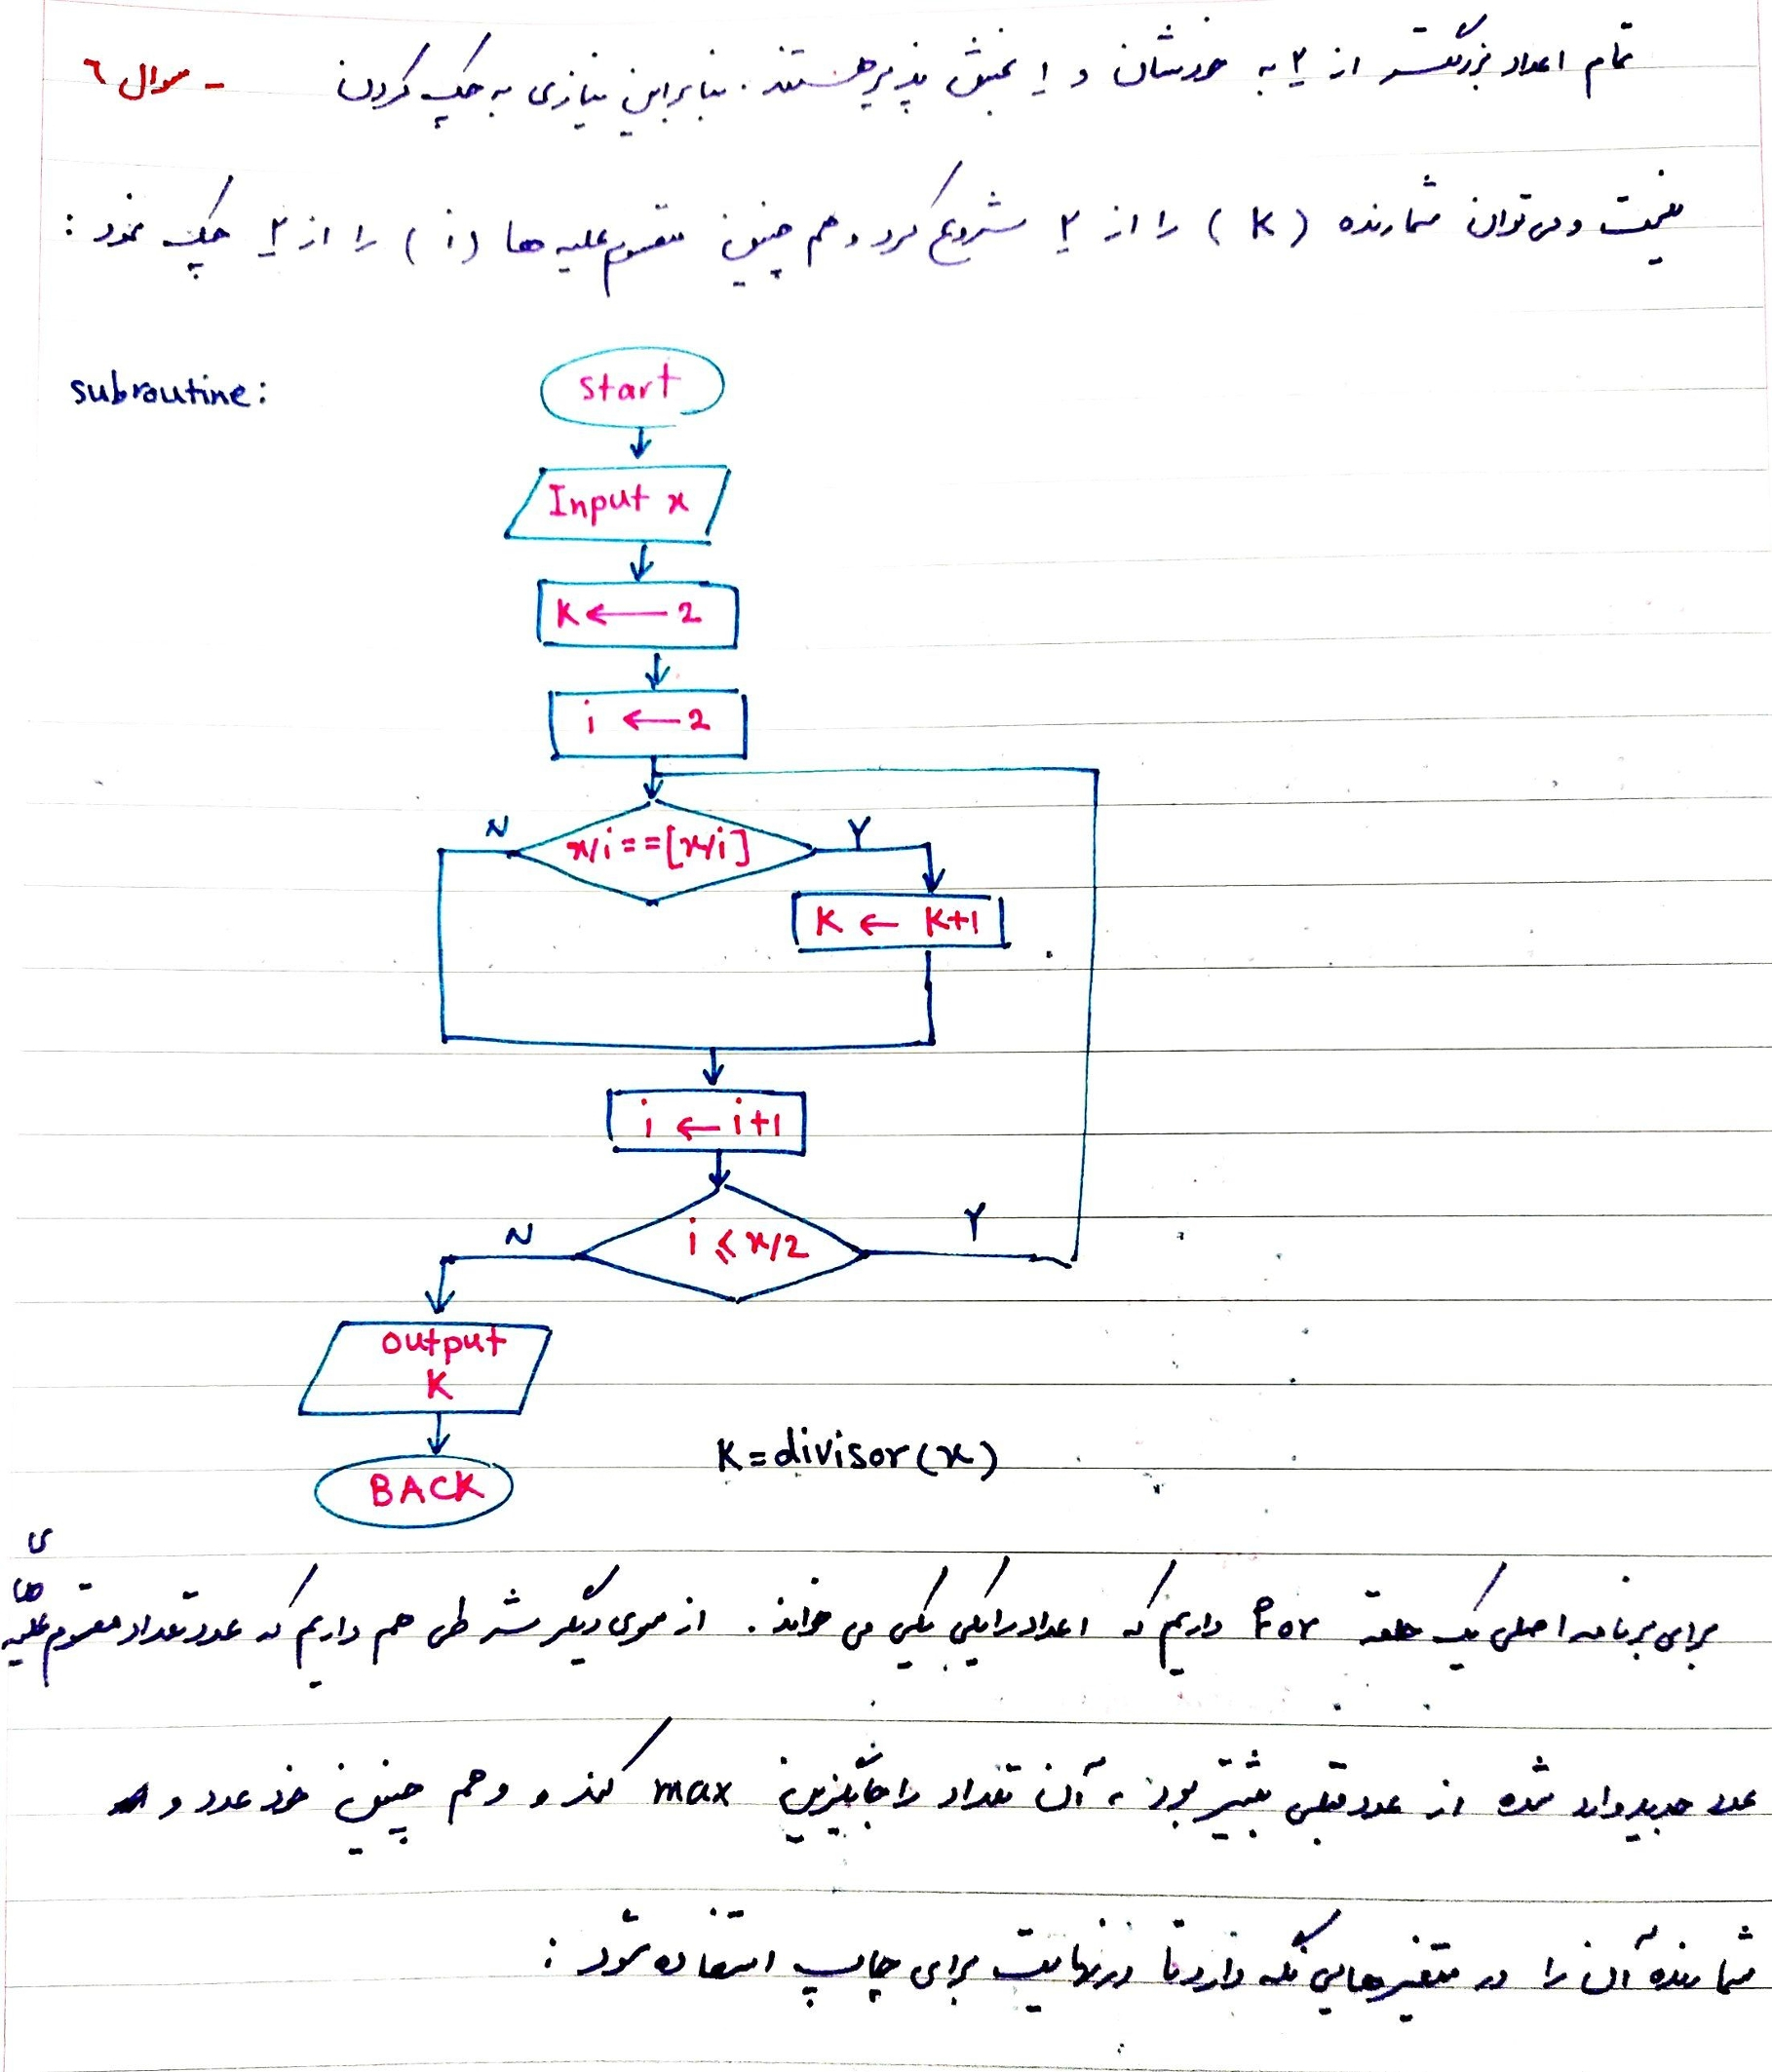 تمام اعداد بزرگتر از ۲ به خودشان و ۱ بخش پذیر هستند. بنابراین نیازی به چک کردن - سوال ۶
نیست و می توان شمارنده (K) را از ۲ شروع کرد و هم چنین مقسوم علیه ها (i) را از ۲ چک نمود :
subroutine:
start
Input x
K ← 2
i ← 2
N
x/i==[x/i]
Y
K ← K+1
i ← i+1
N
i ≤ x/2
Y
output
K
K=divisor(x)
BACK
برای برنامه اصلی یک حلقه For داریم که اعداد را یکی یکی می خواند. از سوی دیگر شرطی هم داریم که عدد تعداد مقسوم علیه های
عدد جدید وارد شده از عدد قبلی بیشتر بود، آن تعداد را جایگزین max کند و هم چنین خود عدد و
شمارنده آن را در متغیرهایی نگه دارد تا در نهایت برای چاپ استفاده شود :